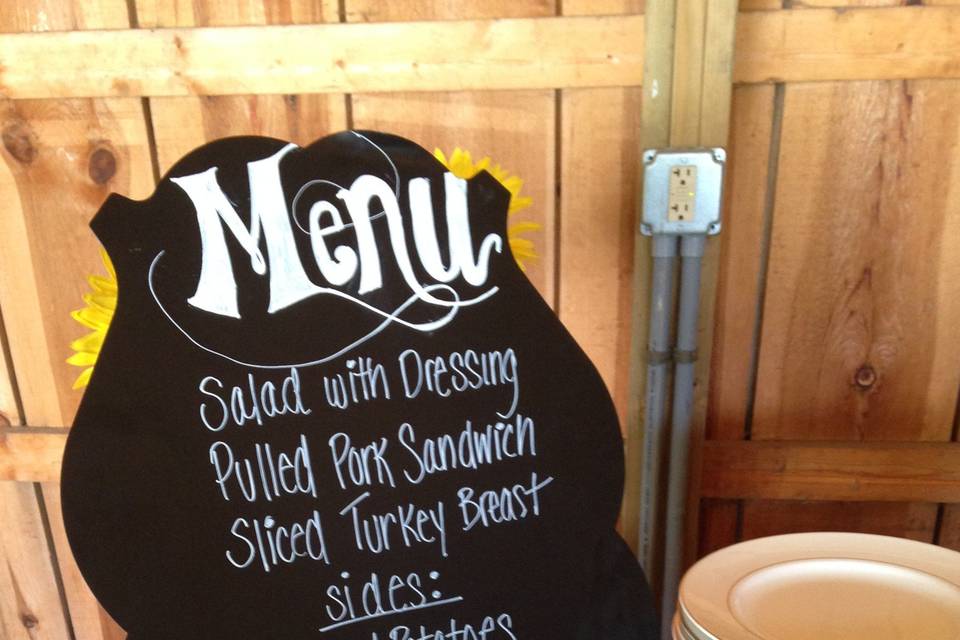 Menu
Salad with Dressing
Pulled Pork Sandwich
Sliced Turkey Breast
sides:
Potatoes